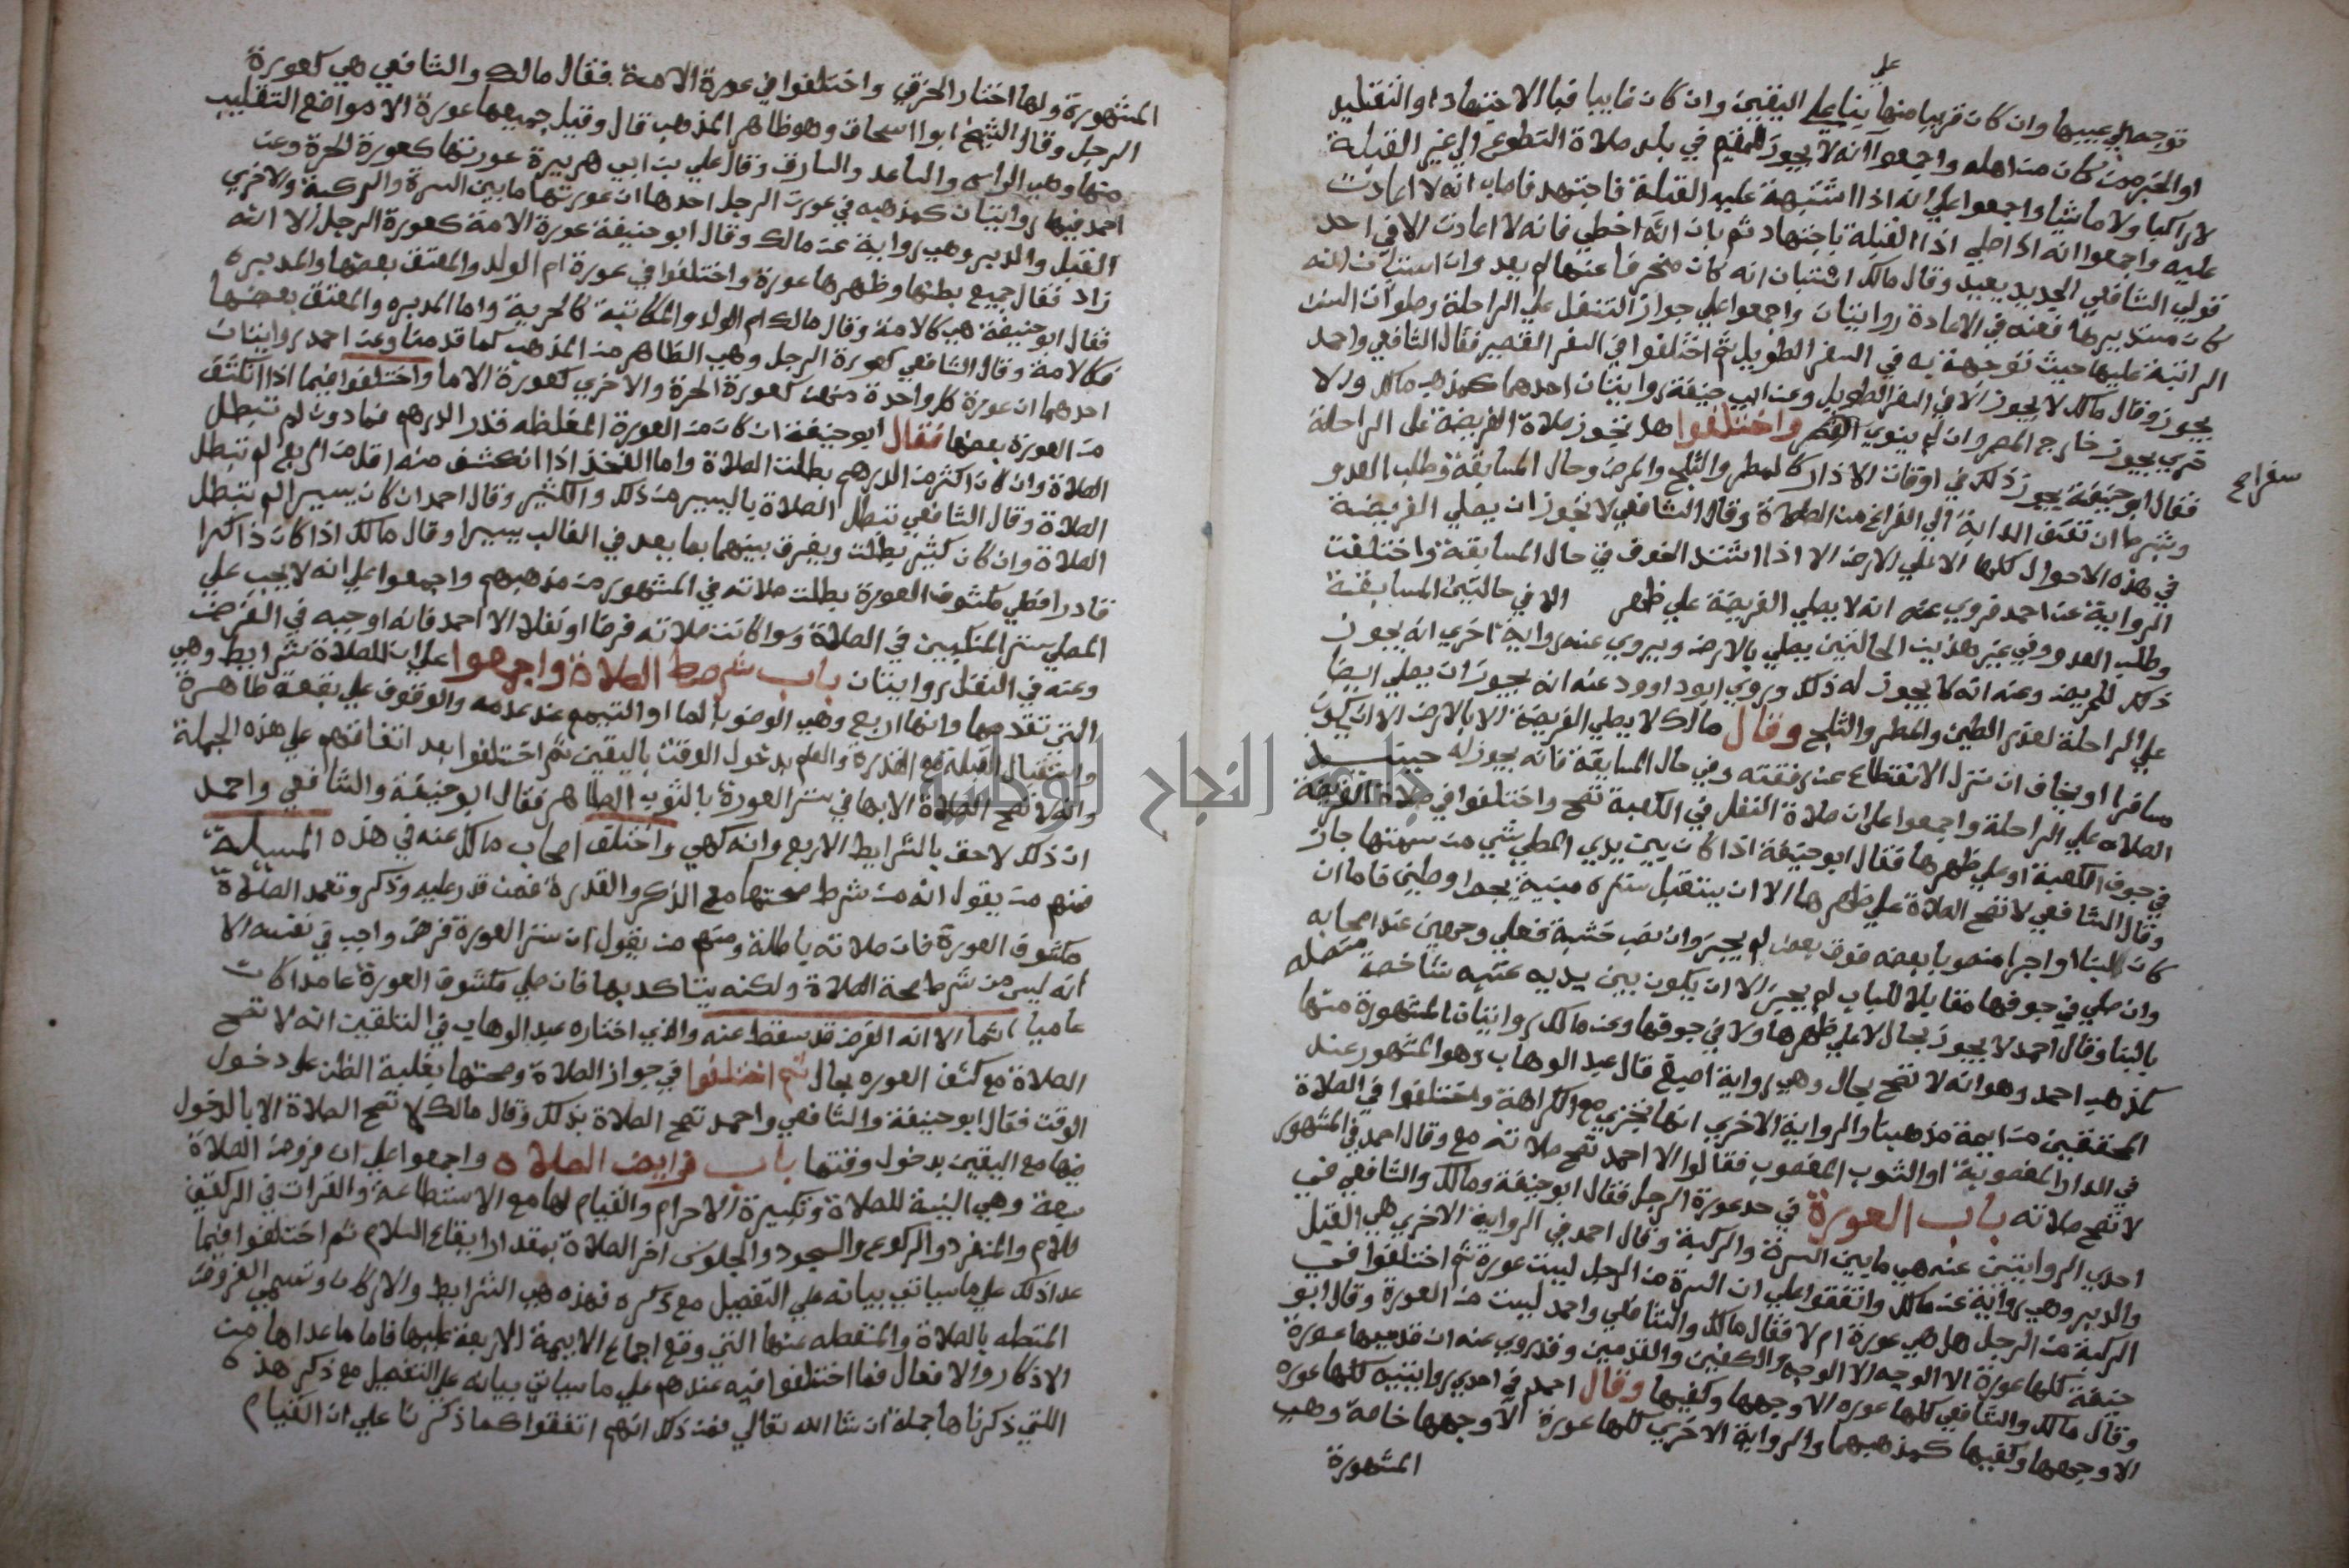 على
توجه الي عينيها وان كان قريبا منها بنا علي اليقين وان كان غايبا فبالاجتهاد او التقليد
او الخبر ممن كان من اهله واجمعوا انه لا يجوز للمقيم في بلد صلاة التطوع الي غير القبلة
لا راكبا ولا ماشيا واجمعوا علي انه اذا اشتبهة عليه القبلة فاجتهد فاصاب انه لا اعادت
عليه واجمعوا انه اذا صلي اذا القبلة باجتهاد ثم بان انه اخطي فانه لا اعادت الا في احد
قولي الشافعي الجديد يعيد وقال مالك ان بان انه كان منحرفا عنها لم يعد وان استبان انه
كان مستدبرها فعنه في الاعادة روايتان واجمعوا علي جواز التنفل علي الراحلة وصلوات السنن
الراتبة عليها حيث توجهة به في السفر الطويل ثم اختلفوا في السفر القصير فقال الشافعي واحمد
يجوز وقال مالك لا يجوز الا في السفر الطويل وعن ابي حنيفة روايتان احدهما كمذهب مالك والا
خري يجوز خارج المصر وان لم ينوي السفر واختلفوا هل تجوز صلاة الفريضة على الراحلة
سفرا صح
فقال ابو حنيفة يجوز ذلك في اوقات الاعذار كالمطر والثلج والمرض وحال المسابقة وطلب العدو
وشرط ان تقف الدابة الي الفراغ من الصلاة وقال الشافعي لا تجوز ان يصلي الفريضة
في هذه الاحوال كلها الا علي الارض الا اذا اشتد الخوف في حال المسابقة واختلفت
الرواية عن احمد فروي عنه انه لا يصلي الفريضة علي ظهر الا في حالتين المسابقة
وطلب العدو وفي غير هذين الحالتين يصلي بالارض ويروي عنه رواية اخري انه يجوز
ذلك للمريض وعنه انه لا يجوز له ذلك وروي ابو داوود عنه انه يجوز ان يصلي ايضا
علي الراحلة لعذر الطين والمطر والثلج وقال مالك لا يصلي الفريضة الا بالارض الا ان يكون
مسافرا او يخاف ان نزل الانقطاع عن رفقته وفي حال المسابقة فانه يجوز له حينئذ
الصلاه علي الراحلة واجمعوا علي ان صلاة النفل في الكعبة تصح واختلفوا في صلاة الفريضة
في جوف الكعبة او علي ظهرها فقال ابو حنيفة اذا كان بين يدي المصلي شي من سمتها جاز
وقال الشافعي لا تصح الصلاة علي ظهرها الا ان يستقبل سترة مبنية بجص او طين فاما ان
كان للبنا او اجرا منصوبا بعضه فوق بعض لم يجز وان نصب خشبة فعلي وجهين عند اصحابه
وان صلي في جوفها مقابلا للباب لم يجز الا ان يكون بين يديه عتبه شاخصة متصله
بالبنا وقال احمد لا يجوز بحال لا علي ظهرها ولا في جوفها وعن مالك روايتان المشهورة منها
كمذهب احمد وهو انه لا تصح بحال وهي رواية اصبغ قال عبد الوهاب وهو المشهور عند
المحققين من ايمة مذهبنا والرواية الاخري انها تجزي مع الكراهة واختلفوا في الصلاة
في الدار المغصوبة او الثوب المغصوب فقالوا الا احمد تصح صلاته مع وقال احمد في المشهور
لا تصح صلاته باب العورة في حد عورة الرجل فقال ابو حنيفة ومالك والشافعي في
احدي الروايتين عنه هي ما بين السرة والركبة وقال احمد في الرواية الاخري هي القبل
والدبر وهي رواية عن مالك واتفقوا علي ان السرة من الرجل ليست عورة ثم اختلفوا في
الركبة من الرجل هل هي عورة ام لا فقال مالك والشافعي واحمد ليست من العورة وقال ابو
حنيفة كلها عورة الا الوجه والكفين والقدمين وقد روي عنه ان قدميها عورة
وقال مالك والشافعي كلها عوره الا وجهها وكفيها وقال احمد في احدي روايتيه كلها عوره
الا وجهها وكفيها كمذهبهما والرواية الاخري كلها عورة الا وجهها خاصة وهي
المشهورة
المشهورة ولها اختار الخرقي واختلفوا في عورة الامة فقال مالك والشافعي هي كعورة
الرجل وقال الشيخ ابو اسحاق وهو ظاهر المذهب قال وقيل جميعها عورة الا مواضع التقليب
منها وهي الراس والساعد والساق وقال علي بن ابي هريرة عورتها كعورة الحرة وعن
احمد فيها روايتان كمذهبه في عورت الرجل احدها ان عورتها ما بين السرة والركبة والاخري
القبل والدبر وهي رواية عن مالك وقال ابو حنيفة عورة الامة كعورة الرجل الا انه
زاد فقال جميع بطنها وظهرها عورة واختلفوا في عورة ام الولد والمعتق بعضها والمدبره
فقال ابو حنيفة هي كالامة وقال مالك ام الولد والمكاتبة كالحرية واما المدبره والمعتق بعضها
فكالامة وقال الشافعي كعورة الرجل وهي الظاهر من المذهب كما قدمنا وعن احمد روايتان
احدهما ان عورة كل واحدة منهن كعورة الحرة والاخري كعورة الاما واختلفوا فيما اذا انكشف
من العورة بعضها فقال ابو حنيفة ان كان من العورة المغلظه قدر الدرهم فما دون لم تبطل
الصلاة وان كان اكثر من الدرهم بطلت الصلاة واما الفخذ اذا انكشف منه اقل من الربع لم تبطل
الصلاة وقال الشافعي تبطل الصلاة باليسير من ذلك والكثير وقال احمد ان كان يسيرا لم تبطل
الصلاة وان كان كثير بطلت ويفرق بينهما بما يعد في الغالب يسيرا وقال مالك اذا كان ذاكرا
قادرا فصلي مكشوف العورة بطلت صلاته في المشهور من مذهبهم واجمعوا علي انه لا يجب علي
المصلي ستر المنكبين في الصلاة وسوا كانت صلاته فرضا او نفلا الا احمد فانه اوجبه في الفرض
وعنه في النفل روايتان باب شرط الصلاة واجمعوا علي ان للصلاة شرايط وهي
التي تقدمها وانها اربع وهي الوضو بالما او التيمم عند عدمه والوقوف علي بقعة طاهرة
واستقبال القبله مع القدرة والعلم بدخول الوقت باليقين ثم اختلفوا بعد اتفاقهم علي هذه الجملة
وانه لا تصح الصلاة الا بها في ستر العورة بالثوب الطاهر فقال ابو حنيفة والشافعي واحمد
ان ذلك لاحق بالشرايط الاربع وانه كهي واختلف اصحاب مالك عنه في هذه المسيلة
فمنهم من يقول انه من شرط صحتها مع الذكر والقدرة فمن قدر عليه وذكر وتعمد الصلاة
مكشوف العورة فان صلاته باطلة ومنهم من يقول ان ستر العورة فرض واجب في نفسه الا
انه ليس من شرط صحة الصلاة ولكنه يتاكد بها فان صلي مكشوف العورة عامدا كان
عاصيا اثما الا انه الفرض قد سقط عنه والذي اختاره عبد الوهاب في التلقين انه لا تصح
الصلاة مع كشف العوره بحال ثم اختلفوا في جواز الصلاة وصحتها بغلبة الظن علي دخول
الوقت فقال ابو حنيفة والشافعي واحمد تصح الصلاة بذلك وقال مالك لا تصح الصلاة الا بالدخول
فيها مع اليقين بدخول وقتها باب فرايض الصلاه واجمعوا علي ان فروض الصلاة
سبعة وهي النية للصلاة وتكبيرة الاحرام والقيام لها مع الاستطاعة والقرات في الركعتين
للامام والمنفرد والركوع والسجود والجلوس اخر الصلاة بمقدار ايقاع السلام ثم اختلفوا فيما
عدا ذلك علي ما سياتي بيانه علي التفصيل مع ذكره فهذه هي الشرايط والاركان وتسمي الفروض
المتصله بالصلاة والمنفصله عنها التي وقع اجماع الايمة الاربعة عليها فاما ما عداها من
الاذكار والافعال فما اختلفوا فيه عندهم علي ما سياتي بيانه علي التفصيل مع ذكر هذه
اللتي ذكرناها جملة ان شا الله تعالي فمن ذلك انهم اتفقوا كما ذكرنا علي ان القيام
جامعة النجاح الوطنية